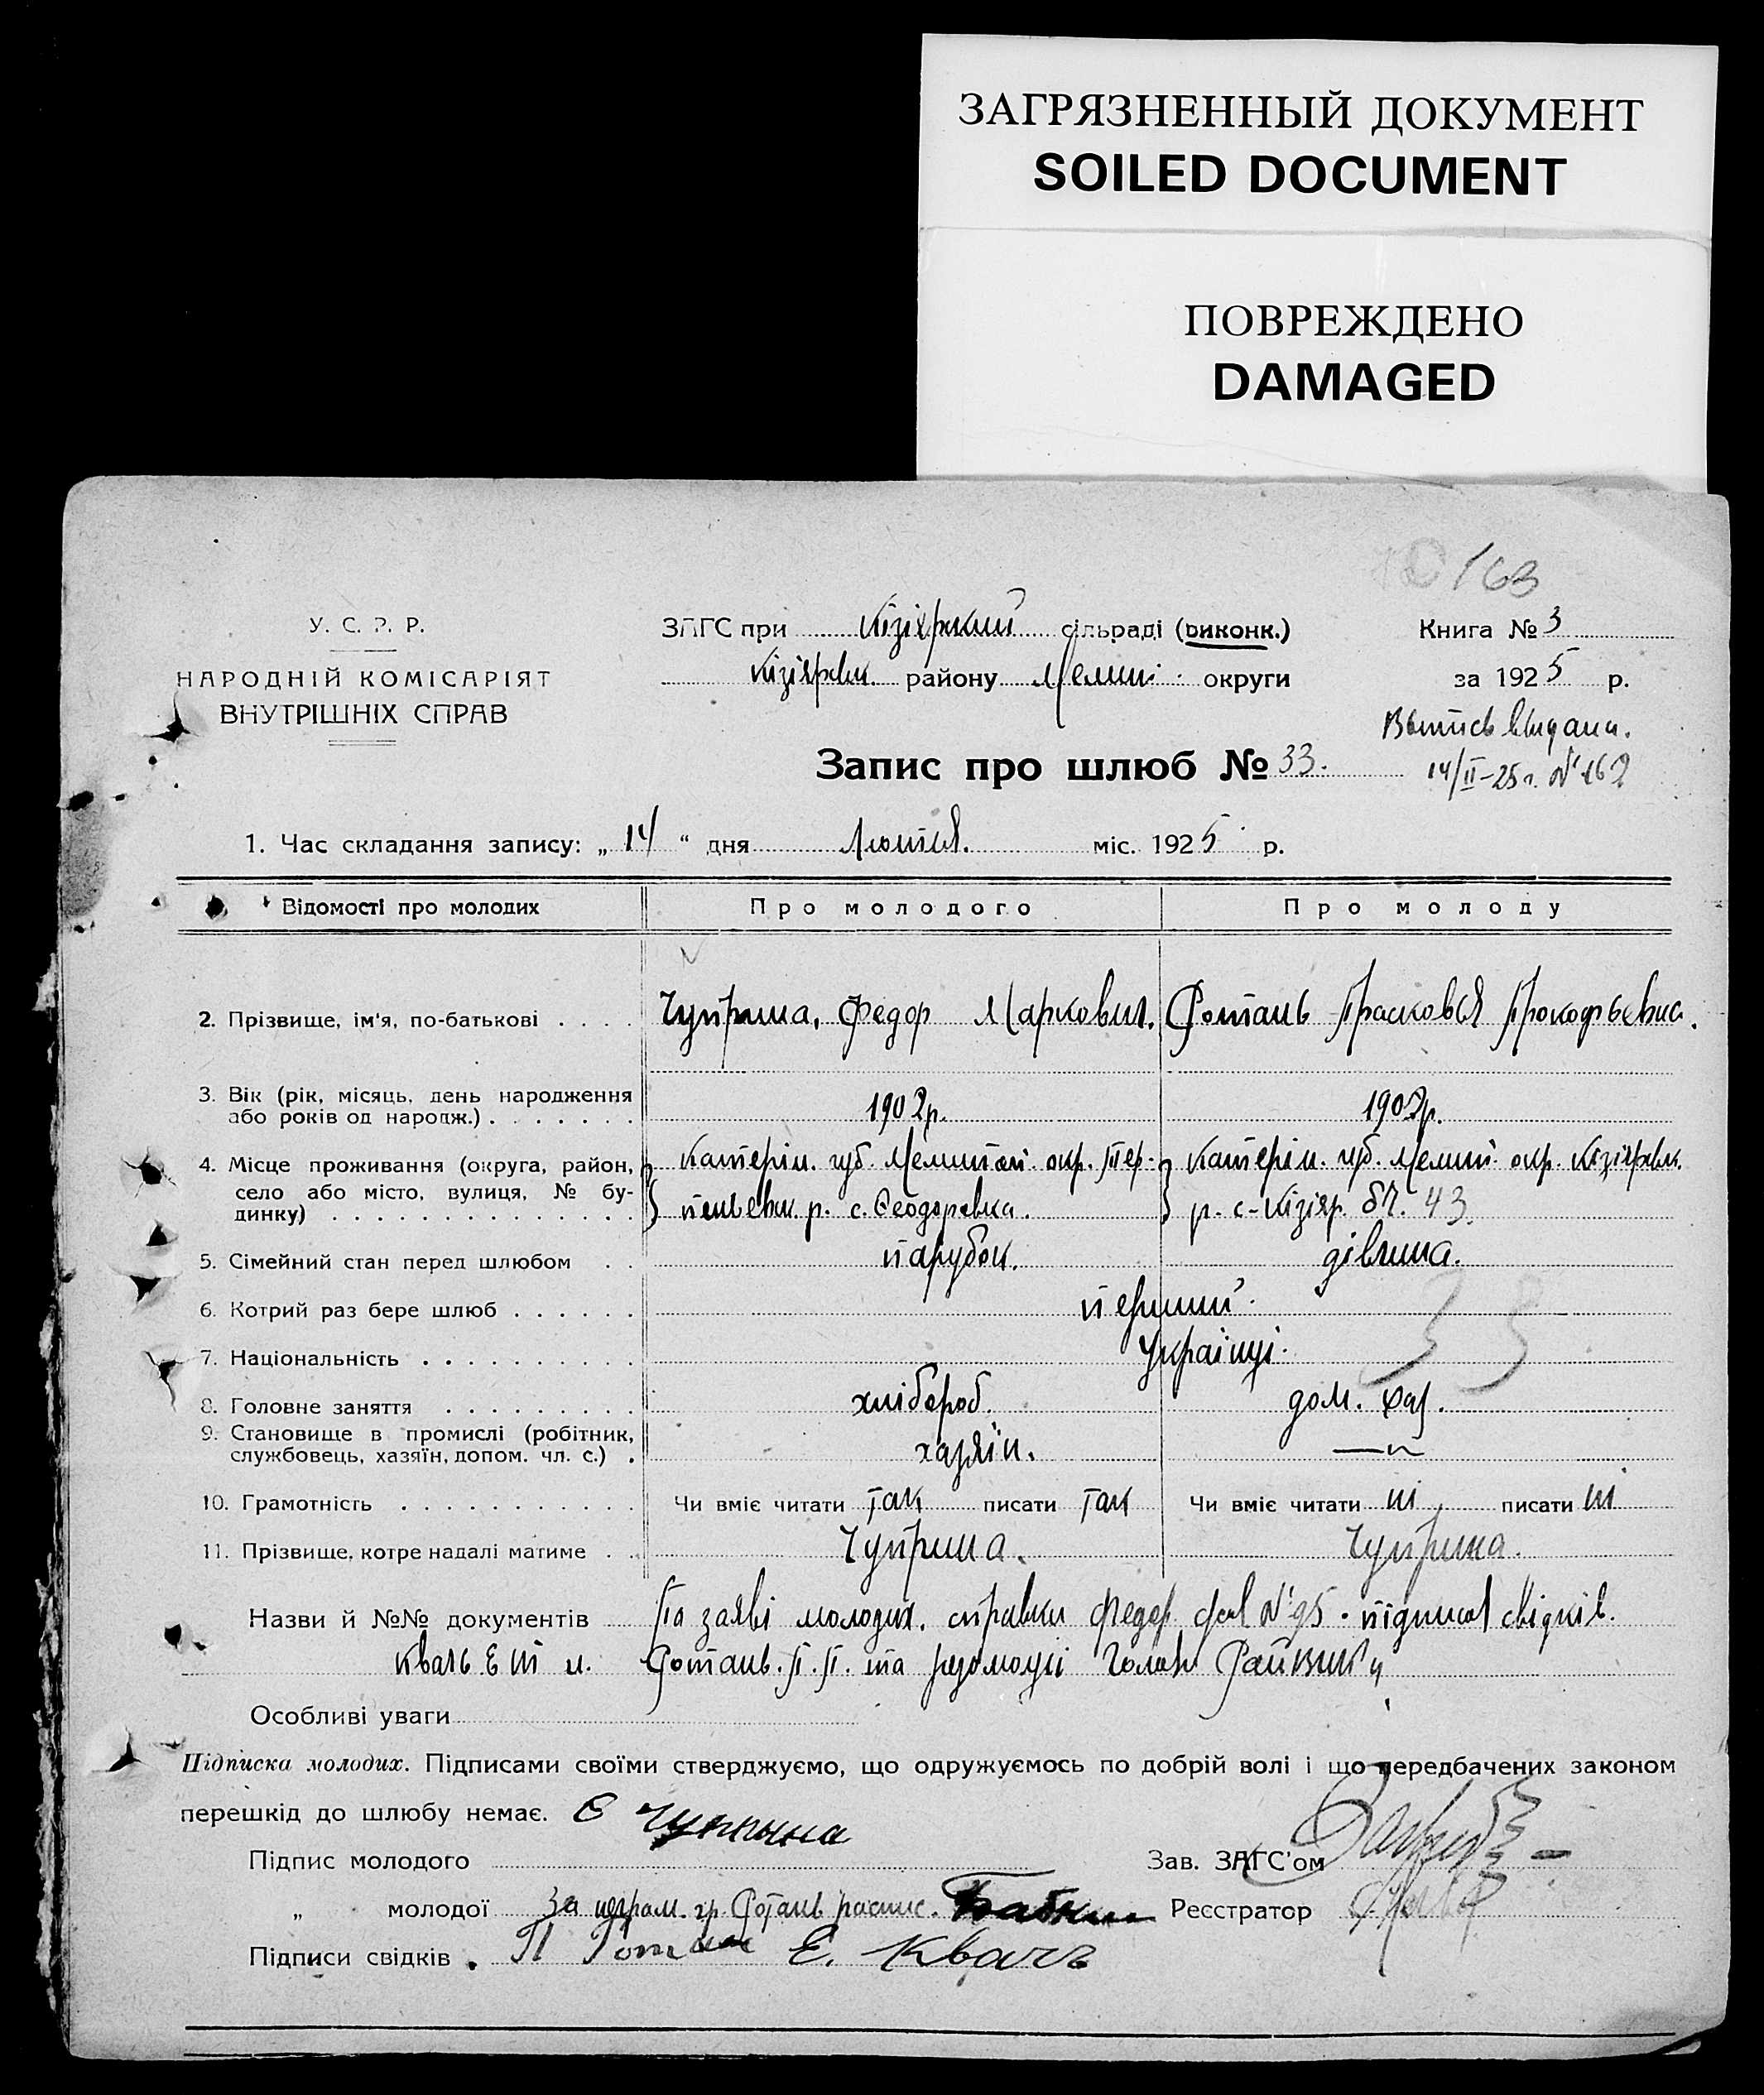 ЗАГРЯЗНЕННЫЙ ДОКУМЕНТ
SOILED DOCUMENT
ПОВРЕЖДЕНО
DAMAGED
163
У. С. Р. Р.
НАРОДНІЙ КОМІСАРІЯТ
ВНУТРІШНІХ СПРАВ
ЗАГС при Кізіярский сільраді (виконк.)
Кізіярськ. району Меліт. округи
Книга № 3
за 1925 р.
Выпись выдана.
14/II-25 г. № 162
Запис про шлюб № 33.
1. Час складання запису: „ 14 “ дня Лютня. міс. 1925 р.
Відомості про молодих Про молодого Про молоду
2. Прізвище, ім'я, по-батькові . . . . Чуприна, Федор Маркович. Ротань Прасковья Прокофьевна.
3. Вік (рік, місяць, день народження
або років од народж.) . . . . . . . 1902р. 1902р.
4. Місце проживання (округа, район, Катерін. губ. Меліт. окр. Тер- Катерін. губ. Меліт. окр. Кізіярськ.
село або місто, вулиця, № бу- р. с. Феодоровка. р. с-Кізіяр. 43.
динку) . . . . . . . . . . . . . .
5. Сімейний стан перед шлюбом . . парубок. дівчина.
6. Котрий раз бере шлюб . . . . . . перший.
7. Національність . . . . . . . . . . Українці.
33
8. Головне заняття . . . . . . . . . хлібороб. дом. хаз.
9. Становище в промислі (робітник,
службовець, хазяїн, допом. чл. с.) . хазяїн. —„—
10. Грамотність . . . . . . . . . . . Чи вміє читати так писати так Чи вміє читати ні писати ні
11. Прізвище, котре надалі матиме . . Чуприна. Чуприна.
Назви й №№ документів По заяві молодих. справки Федор. № 95. підписів свідків.
Квачь Е. и. Ротань. П. П. та
Особливі уваги
Підписка молодих. Підписами своїми стверджуємо, що одружуємось по добрій волі і що передбачених законом
перешкід до шлюбу немає.
Підпис молодого Ф Чупрына Зав. ЗАГС'ом
„ молодої За неграм. гр. Ротань распис. Бабкин Реєстратор
Підписи свідків . П Ротань Е. Квачь